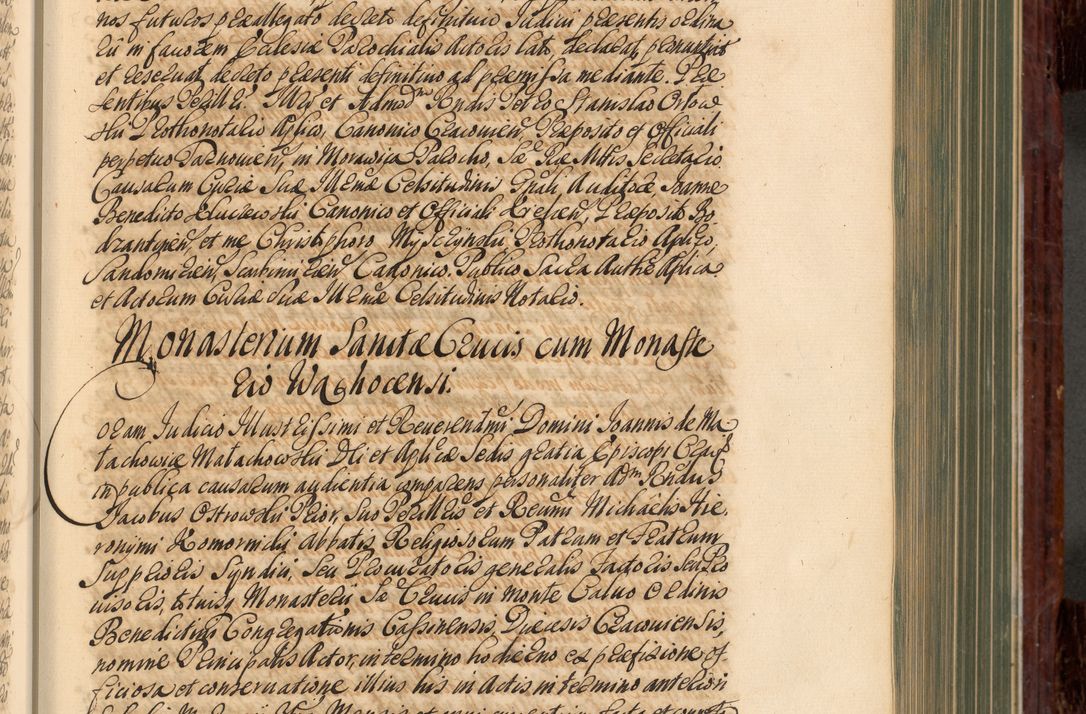 nos futuros præallegato decreto definitivo Judicii præsentis ordina
rii in favorem Ecclesiæ Parochialis Actoris lato, declarat, plenariuit
et reservat decreto præsenti definitivo ad præmissa mediante. Præ
sentibus Perill. Illri et Admod. Rndis Petro Stanislao Orłow
ski Prothonotario Aplico, Canonico Cracovien, Præposito et Officiali
perpetuo Tarnovien, in Morawica Parocho, Sæ Ræ Mttis Secretario
Causarum Curiæ Suæ Illmæ Celsitudinis Gnali Auditore Joanne
Benedicto Canonico et Officiali Kielcen, Præposito Bo
dzantinen, et me Christophoro Myszynski, Prothonotario Aplico,
Sandomirien, Scarbimirien Canonico, Publico Sacra Authe Aplica
et Actorum Curiæ Suæ Illmæ Celsitudinis Notario.
Monasterium Sanctæ Crucis cum Monaste
rio Wąchocensi.
Coram Judicio Illustrissimi et Reverendmi Domini Joannis de Ma
łachowice Małachowski Dei et Aplicæ Sedis gratia, Episcopi Crac
in publica causarum audientia comparens personaliter Adm Rndus
Jacobus Ostrowski Prior, Suo Perillris et Revmi Michaelis Hie,
ronymi Komornicki Abbatis, Religiosorum Patrum et Fratrum
Supprioris Syndici, Seu Procuratoris generalis Factoris Seu Pro
visoris, totiusq Monasterij Sæ Crucis in Monte Calvo Ordinis
Benedictini Congregationis Cassinensis, Diæcesis Cracoviensis,
nomine Principalis Actor, in termino hodierno ex præfixione of
ficiosa et conservatione illius his in Actis in termino anteriori